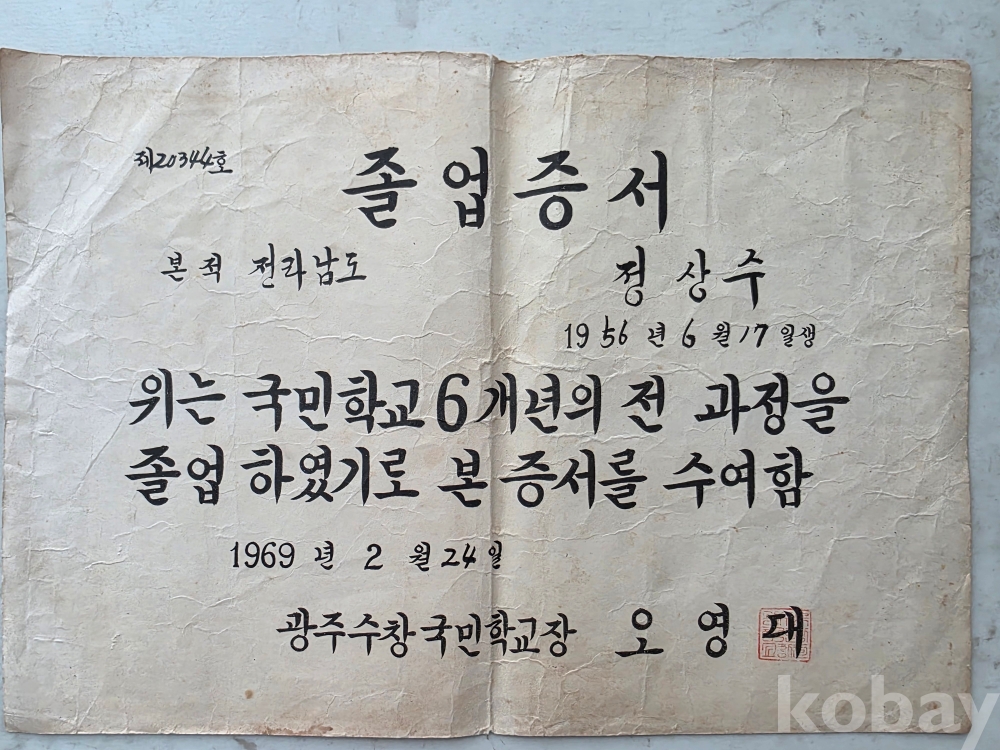 제20344호
졸업증서
본적 전라남도
정상수
1956년 6월 17일생
위는 국민학교 6개년의 전 과정을
졸업 하였기로 본 증서를 수여함
1969년 2월 24일
광주수창국민학교장 오영대
kobay